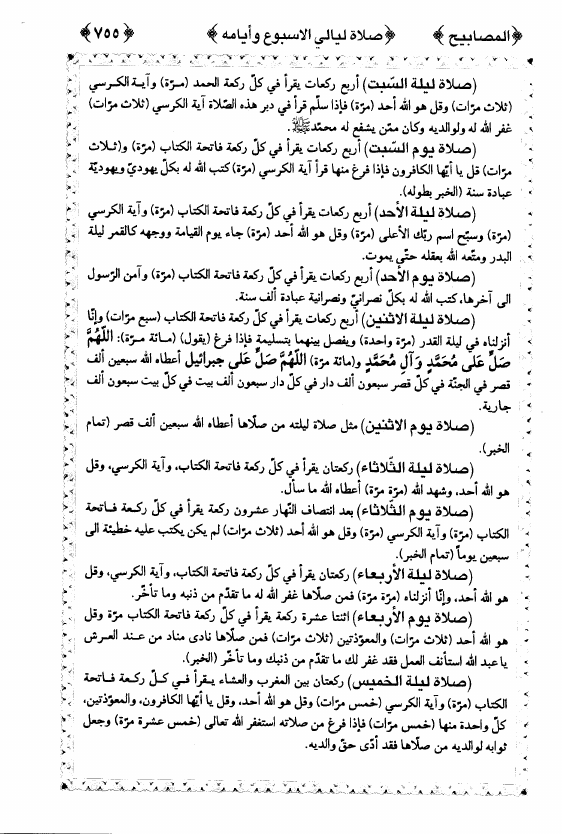 ﴿المصابيح﴾ ﴿صلاة ليالي الاسبوع وأيامه﴾ ﴿٧٥٥﴾
(صلاة ليلة السّبت) أربع ركعات يقرأ في كلّ ركعة الحمد (مرّة) وآيـة الكـرسي
(ثلاث مرّات) وقل هو الله أحد (مرّة) فإذا سلّم قرأ في دبر هذه الصّلاة آية الكرسي (ثلاث مرّات)
غفر الله له ولوالديه وكان ممّن يشفع له محمّدﷺ.
(صلاة يوم السّبت) أربع ركعات يقرأ في كلّ ركعة فاتحة الكتاب (مرّة) و(ثـلاث
مرّات) قل يا أيّها الكافرون فإذا فرغ منها قرأ آية الكرسي (مرّة) كتب الله له بكلّ يهوديّ ويهوديّة
عبادة سنة (الخبر بطوله).
(صلاة ليلة الأحد) أربع ركعات يقرأ في كلّ ركعة فاتحة الكتاب (مرّة) وآية الكرسي
(مرّة) وسبّح اسم ربّك الأعلى (مرّة) وقل هو الله أحد (مرّة) جاء يوم القيامة ووجهه كالقمر ليلة
البدر ومتّعه الله بعقله حتّى يموت.
(صلاة يوم الأحد) أربع ركعات يقرأ في كلّ ركعة فاتحة الكتاب (مرّة) وآمن الرّسول
الى آخرها، كتب الله له بكلّ نصرانيّ ونصرانية عبادة ألف سنة.
(صلاة ليلة الاثنين) أربع ركعات يقرأ في كلّ ركعة فاتحة الكتاب (سبع مرّات) وإنّا
أنزلناه في ليلة القدر (مرّة واحدة) ويفصل بينهما بتسليمة فإذا فرغ (يقول) (مـائة مـرّة): اَللّهُمَّ
صَلِّ عَلى مُحَمَّدٍ وَآلِ مُحَمَّدٍ و(مائة مرّة) اَللّهُمَّ صَلِّ عَلى جبرائيل أعطاه الله سبعين ألف
قصر في الجنّة في كلّ قصر سبعون ألف دار في كلّ دار سبعون ألف بيت في كلّ بيت سبعون ألف
جارية.
(صلاة يوم الاثنين) مثل صلاة ليلته من صلّاها أعطاه الله سبعين ألف قصر (تمام
الخبر).
(صلاة ليلة الثّلاثاء) ركعتان يقرأ في كلّ ركعة فاتحة الكتاب، وآية الكرسي، وقل
هو الله أحد، وشهد الله (مرّة مرّة) أعطاه الله ما سأل.
(صلاة يوم الثّلاثاء) بعد انتصاف النّهار عشرون ركعة يقرأ في كلّ ركـعة فـاتحة
الكتاب (مرّة) وآية الكرسي (مرّة) وقل هو الله أحد (ثلاث مرّات) لم يكن يكتب عليه خطيئة الى
سبعين يوماً (تمام الخبر).
(صلاة ليلة الأربعاء) ركعتان يقرأ في كلّ ركعة فاتحة الكتاب، وآية الكرسي، وقل
هو الله أحد، وإنّا أنزلناه (مرّة مرّة) فمن صلّاها غفر الله له ما تقدّم من ذنبه وما تأخّر.
(صلاة يوم الأربعاء) اثنتا عشرة ركعة يقرأ في كلّ ركعة فاتحة الكتاب مرّة وقل
هو الله أحد (ثلاث مرّات) والمعوّذتين (ثلاث مرّات) فمن صلّاها نادى مناد من عـند العـرش
يا عبد الله استأنف العمل فقد غفر لك ما تقدّم من ذنبك وما تأخّر (الخبر).
(صلاة ليلة الخميس) ركعتان بين المغرب والعشاء يـقرأ فـي كـلّ ركعة فـاتحة
الكتاب (مرّة) وآية الكرسي (خمس مرّات) وقل هو الله أحد، وقل يا أيّها الكافرون، والمعوّذتين،
كلّ واحدة منها (خمس مرّات) فإذا فرغ من صلاته استغفر الله تعالى (خمس عشرة مرّة) وجعل
ثوابه لوالديه من صلّاها فقد أدّى حقّ والديه.